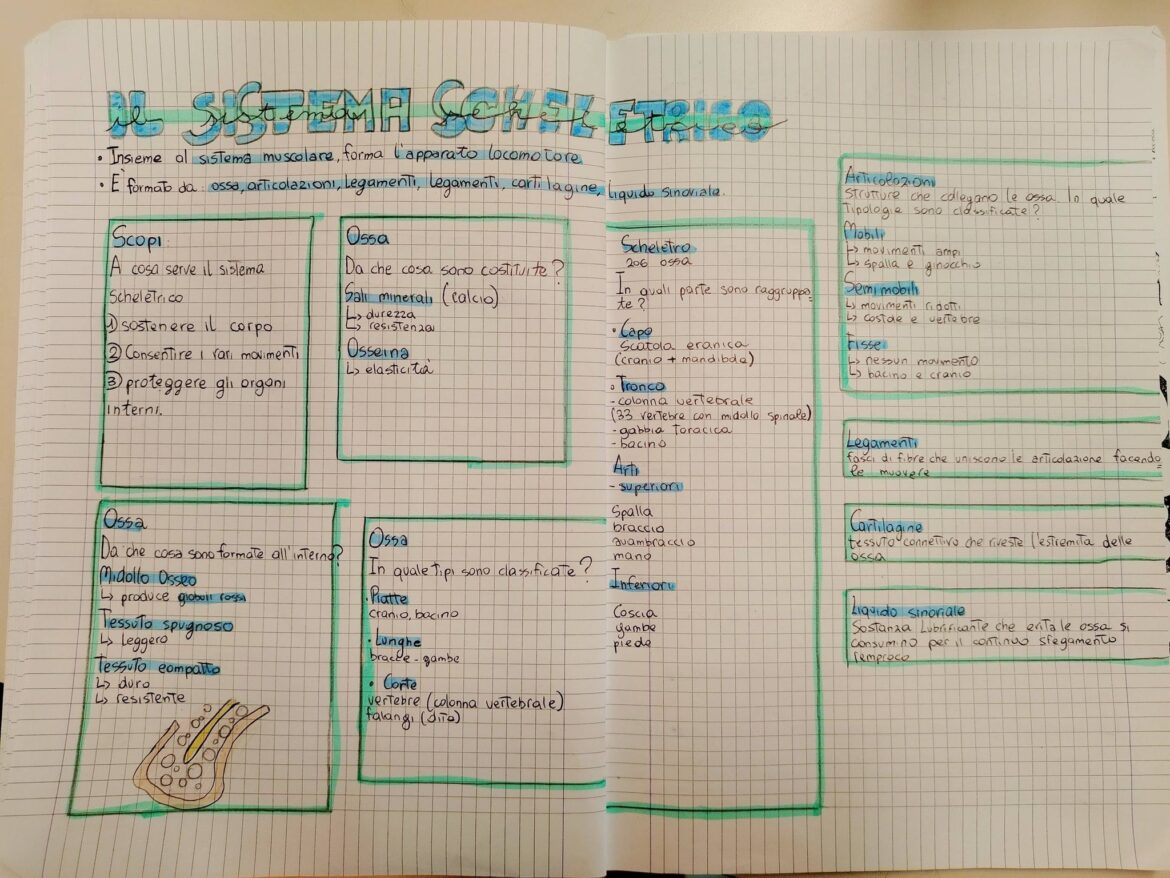 IL SISTEMA SCHELETRICO
il sistema scheletrico
• Insieme al sistema muscolare, forma l'apparato locomotore
• È formato da: ossa, articolazioni, legamenti, legamenti, cartilagine, liquido sinoviale.
Scopi:
A cosa serve il sistema
scheletrico
1) sostenere il corpo
2) Consentire i vari movimenti
3) proteggere gli organi
interni.
Ossa
Da che cosa sono costituite?
Sali minerali (calcio)
↳ durezza
↳ resistenza
Osseina
↳ elasticità
Ossa
Da che cosa sono formate all'interno?
Midollo Osseo
↳ produce globuli rossi
Tessuto spugnoso
↳ leggero
Tessuto compatto
↳ duro
↳ resistente
Ossa
In quale tipi sono classificate?
• Piatte
cranio, bacino
• Lunghe
bracce - gambe
• Corte
vertebre (colonna vertebrale)
falangi (dita)
Scheletro
206 ossa
In quali parte sono raggruppa-
te?
• Capo
Scatola cranica
(cranio + mandibola)
• Tronco
- colonna vertebrale
(33 vertebre con midollo spinale)
- gabbia toracica
- bacino
Arti
- superiori
Spalla
braccio
avambraccio
mano
Inferiori
Coscia
gambe
piede
Articolazioni
strutture che collegano le ossa. In quale
tipologie sono classificate?
Mobili
↳ movimenti ampi
↳ spalla e ginocchio
Semi mobili
↳ movimenti ridotti
↳ costole e vertebre
Fisse
↳ nessun movimento
↳ bacino e cranio
Legamenti
fasci di fibre che uniscono le articolazione facendo
le muovere
Cartilagine
tessuto connettivo che riveste l'estremità delle
ossa
Liquido sinoviale
Sostanza lubrificante che evita le ossa si
consumino per il continuo sfregamento